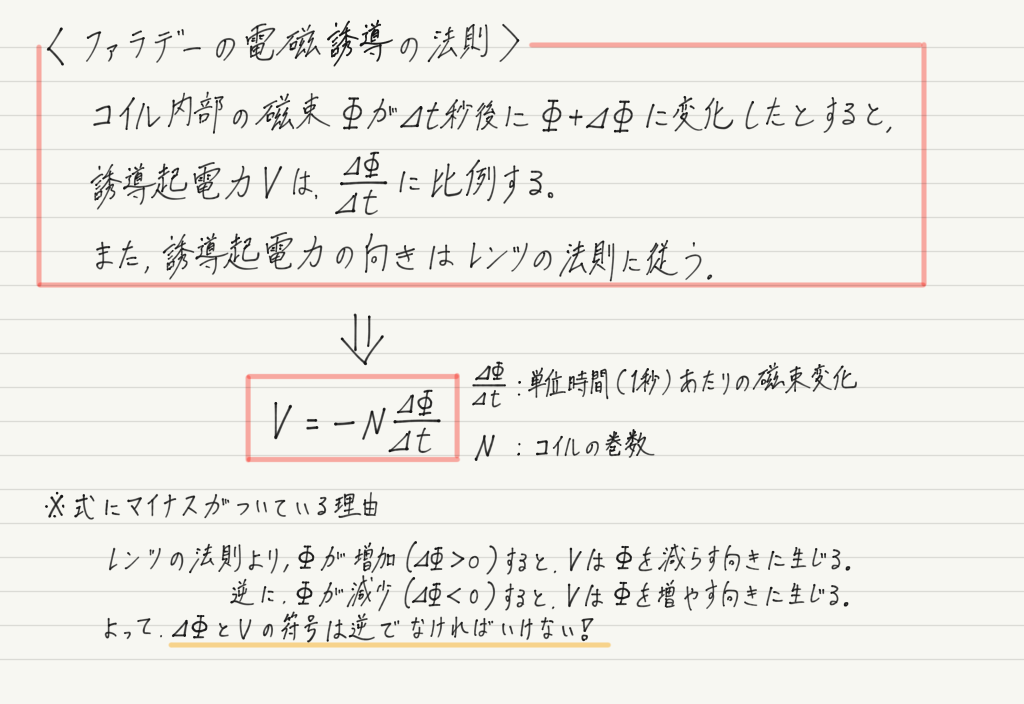 〈ファラデーの電磁誘導の法則〉
コイル内部の磁束ΦがΔt秒後にΦ+ΔΦに変化したとすると,
誘導起電力Vは, ΔΦ/Δt に比例する。
また, 誘導起電力の向きはレンツの法則に従う.
⇓
V = −N ΔΦ/Δt
ΔΦ/Δt : 単位時間(1秒)あたりの磁束変化
N : コイルの巻数
※式にマイナスがついている理由
レンツの法則より, Φが増加(ΔΦ>0)すると, VはΦを減らす向きに生じる.
逆に, Φが減少(ΔΦ<0)すると, VはΦを増やす向きに生じる.
よって, ΔΦとVの符号は逆でなければいけない!